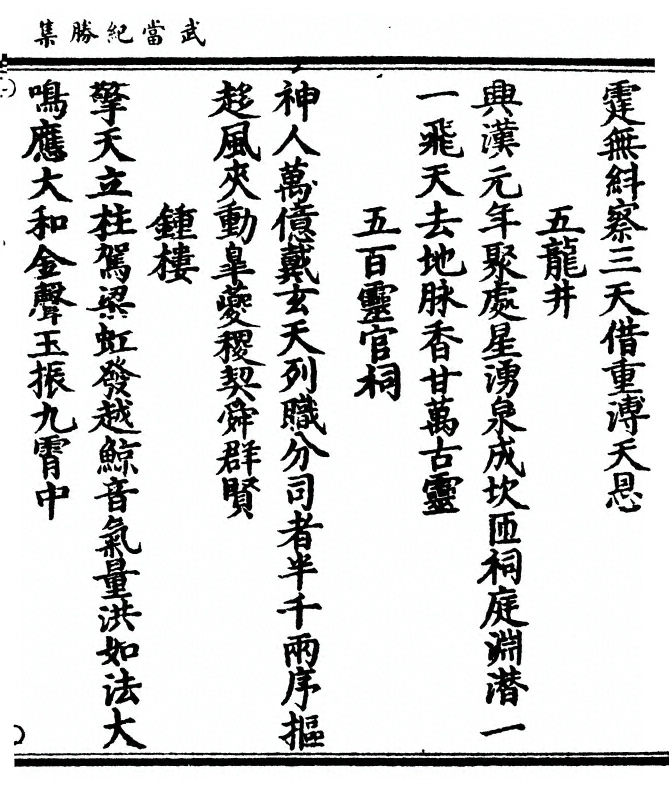 武當紀勝集
霆無紏察三天借重溥天恩
五龍井
興漢元年聚處星湧泉成坎匝祠庭淵潜一
一飛天去地脉香甘萬古靈
五百靈官祠
神人萬億戴玄天列職分司者半千兩序摳
趍風夾動臯夔稷契舜群賢
鍾樓
擎天立柱駕梁虹發越鯨音氣量洪如法大
鳴應大和金聲玉振九霄中